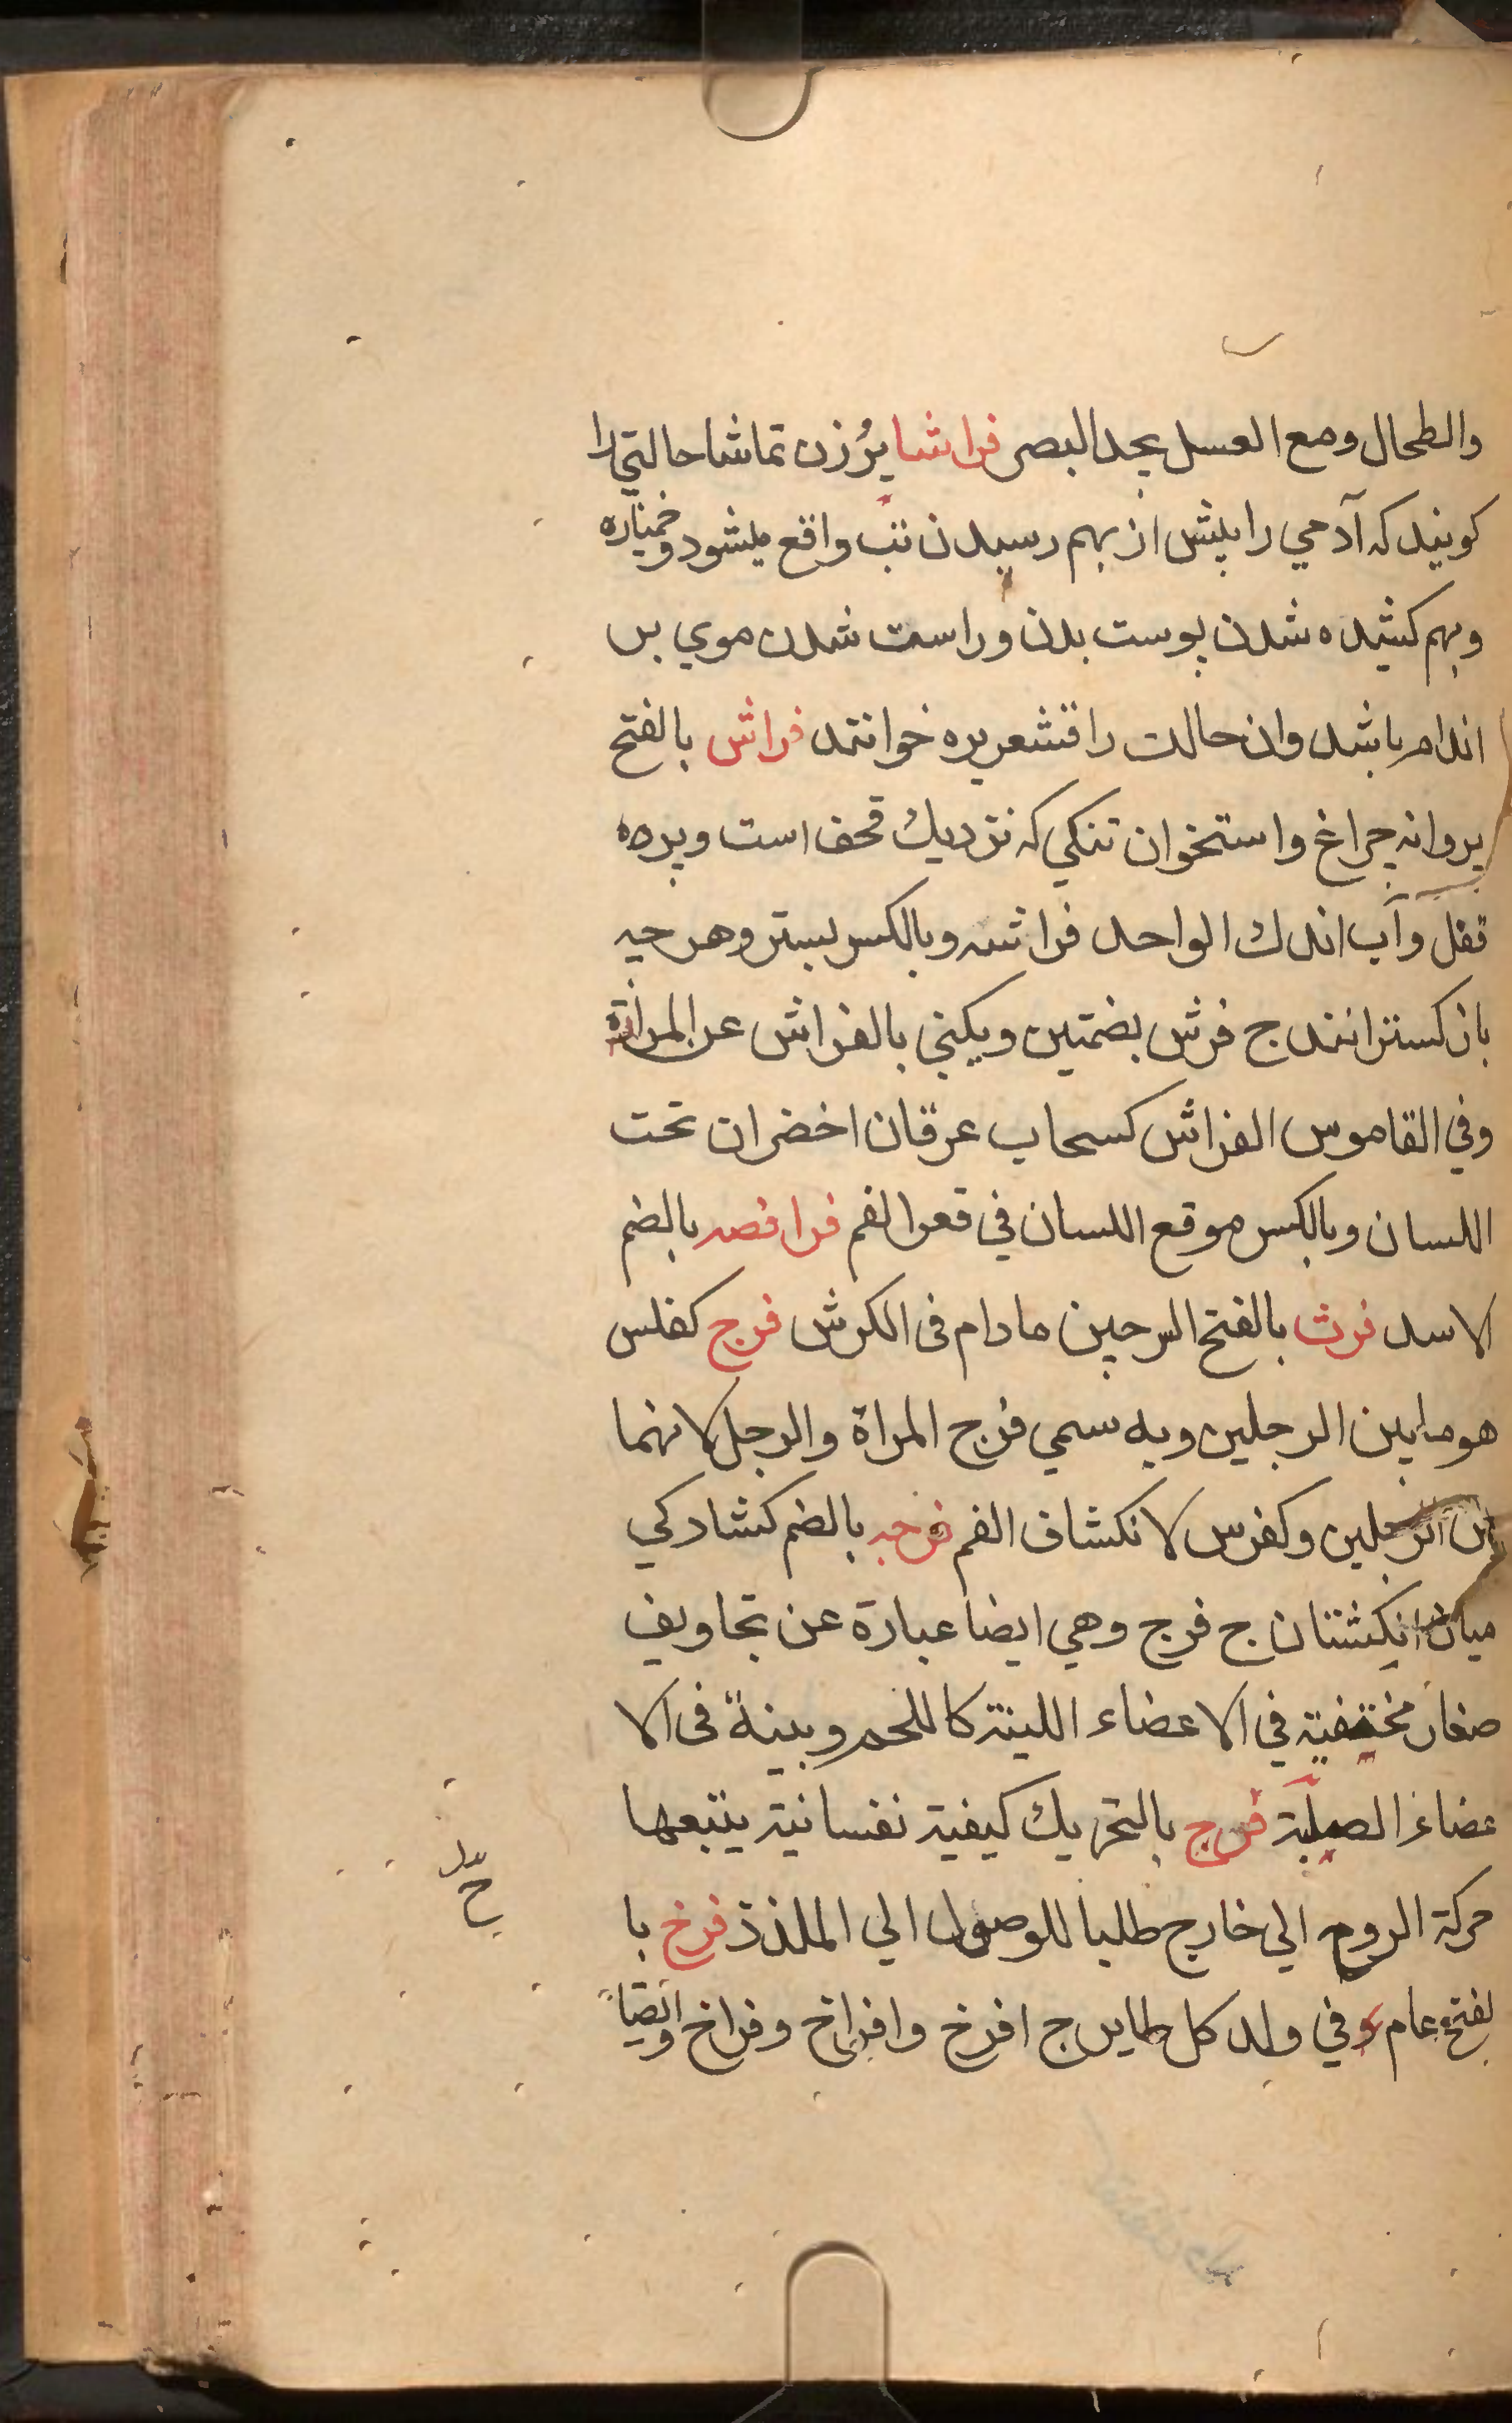 والطحال ومع العسل يجد البصر فراشا بُرُزن تماشا حالتي را
كویند که آدمي را پیش از بهم رسیدن تب واقع میشود وخمیازه
وبهم کشیده شدن پوست بدن و راست شدن موي بر
اندام باشد وان حالت را قشعریره خوانند فراش بالفتح
پروانه چراغ واستخوان تنکي که نزدیك قحف است وپره
قفل وآب اندك الواحد فراشه وبالکسر بستر وهر چه
بان کسترانند ج فرش بضمتین ویکني بالفراش عن المرأة
وفي القاموس الفراش کسحاب عرقان اخضران تحت
اللسان وبالکسر موقع اللسان في قعر الفم فرافصه بالضم
الاسد فرث بالفتح السرجین مادام فی الکرش فرج کفلس
هو مابین الرجلین وبه سمي فرج المراة والرجل لانهما
بین الرجلین وکفرس لانکشاف الغم فرجه بالضم کشادکي
میان انکشتان ج فرج وهي ایضا عبارة عن تجاویف
صغار مختفیة في الاعضاء اللینة کاللحم وبینة فی الا
عضاء الصلبة فرح بالتحریك کیفیة نفسانیة یتبعها
حرکة الروح الي خارج طلبا للوصول الي الملذذ فرخ با
لفتح عام وفي ولد کل طایر ج افرخ وافراخ وفراخ وایضاً